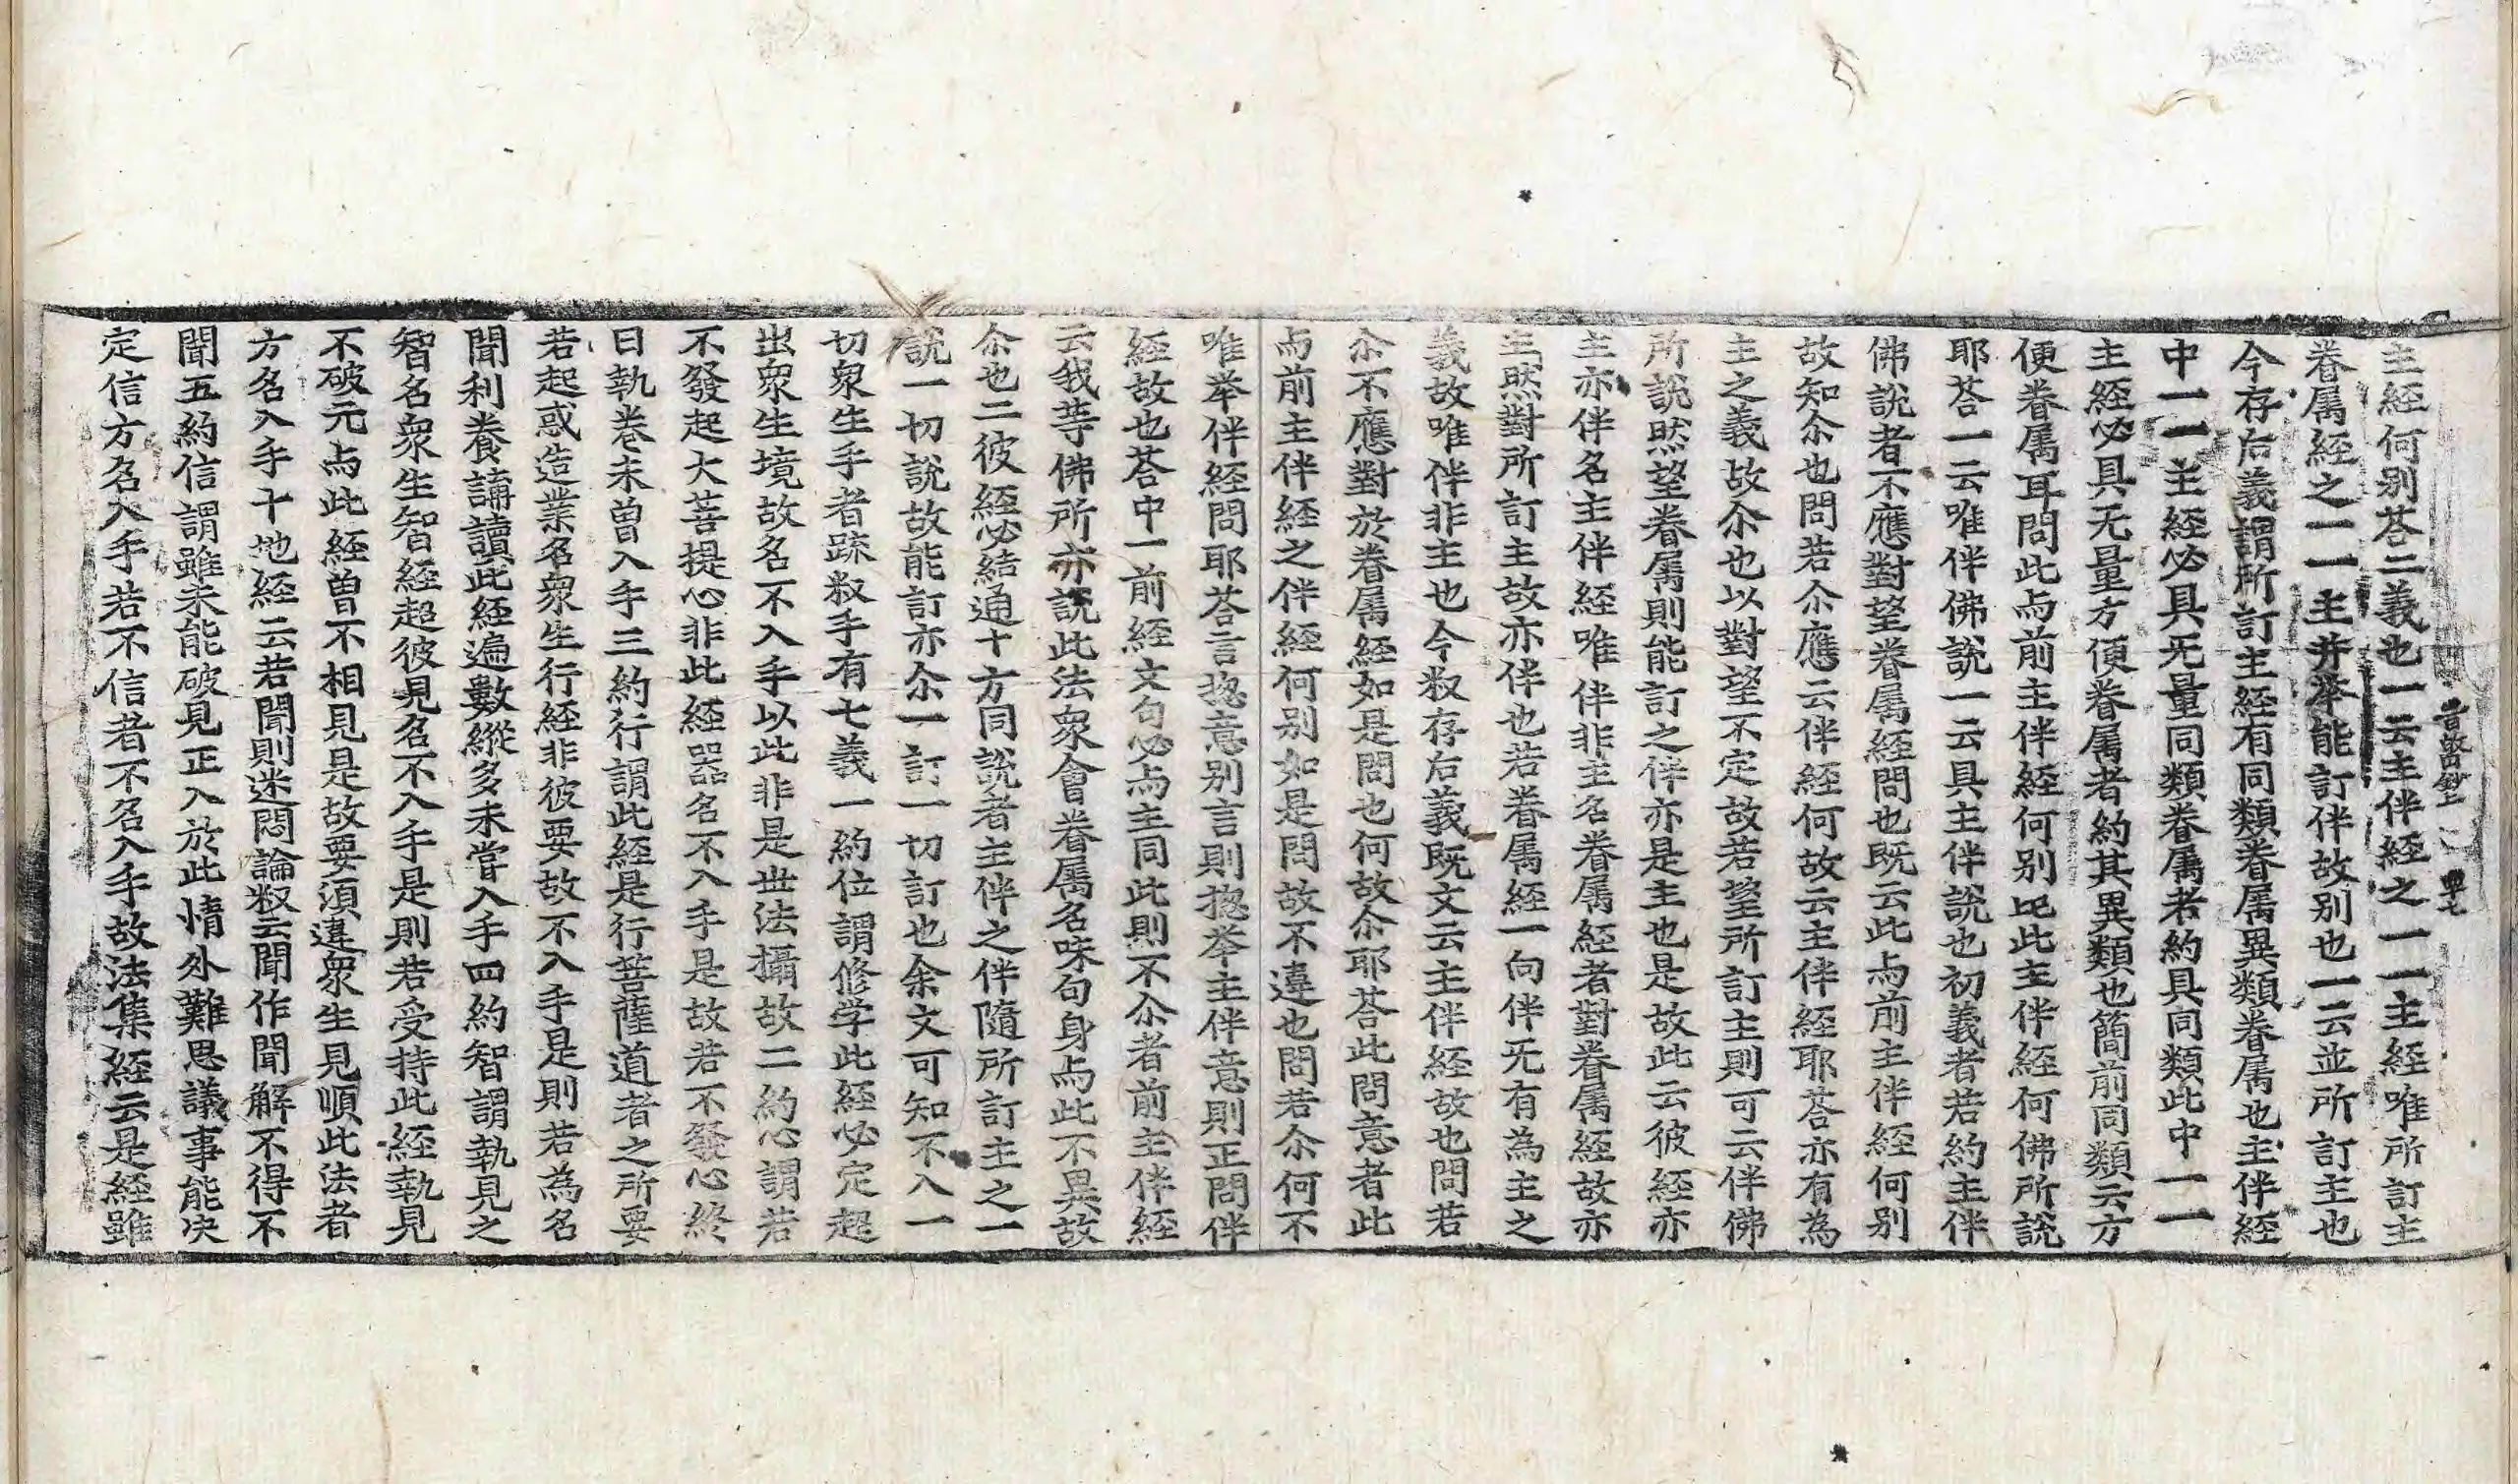 主経何别荅二義也一云主伴経之一一主経唯所訂主
眷属経之一一主并举能訂伴故别也一云並所訂主也
今存后義謂所訂主経有同類眷属異類眷属也主伴経
中一一主経必具旡量同類眷属者約具同類此中一一
主経必具无量方便眷属者約其異類也簡前同類云方
便眷属耳問此与前主伴経何别此主伴経何佛所說
耶荅一云唯伴佛說一云具主伴說也初義者若約主伴
佛說者不應對望眷属経問也既云此与前主伴経何别
故知尒也問若尒應云伴経何故云主伴経耶荅亦有為
主之義故尒也以對望不定故若望所訂主則可云伴佛
所說然望眷属則能訂之伴亦是主也是故此云彼経亦
主亦伴名主伴経唯伴非主名眷属経者對眷属経故亦
主然對所訂主故亦伴也若眷属経一向伴旡有為主之
義故唯伴非主也今叙存后義既文云主伴経故也問若
尒不應對於眷属経如是問也何故尒耶荅此問意者此
与前主伴経之伴経何别如是問故不違也問若尒何不
唯举伴経問耶荅言揔意别言則揔举主伴意則正問伴
経故也荅中一前経文句必与主同此則不尒者前主伴経
云我等佛所亦說此法衆會眷属名味句身与此不異故
尒也二彼経必結通十方同說者主伴之伴隨所訂主之一
說一切說故能訂亦尒一訂一切訂也余文可知不入一
切衆生手者䟽叙手有七義一約位謂修学此経必定超
出衆生境故名不入手以此非是世法攝故二約心謂若
不發起大菩提心非此経器名不入手是故若不發心終
日執卷未曾入手三約行謂此経是行菩薩道者之所要
若起惑造業名衆生行経非彼要故不入手是則若為名
聞利養讀此経遍數縱多未嘗入手四約智謂執見之
智名衆生智経超彼見名不入手是則若受持此経執見
不破元与此経曾不相見是故要湏違衆生見順此法者
方名入手十地経云若聞則迷悶論叙云聞作聞解不得不
聞五約信謂雖未能破見正入於此情外難思議事能决
定信方名入手若不信者不名入手故法集経云是経雖